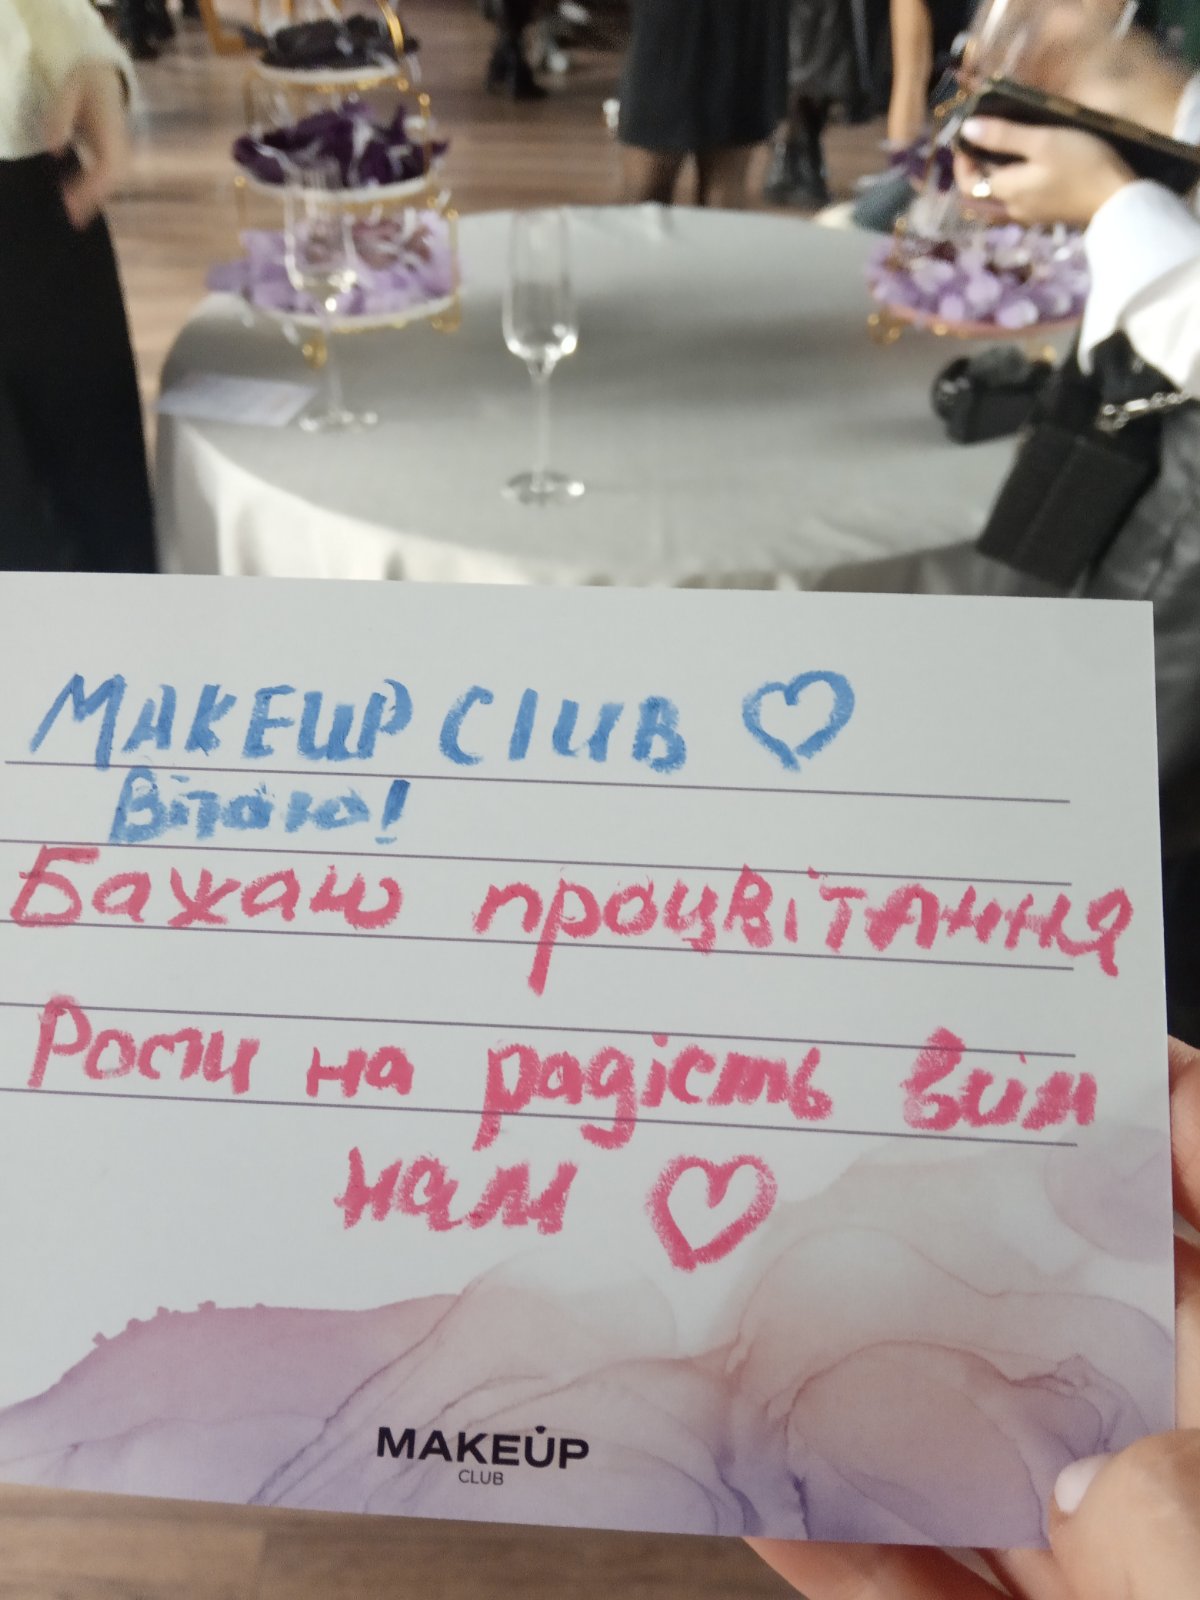 MAKEUP CLUB ♡
Вітаю!
Бажаю процвітання
Рости на радість всім
нам ♡
MAKEUP
CLUB